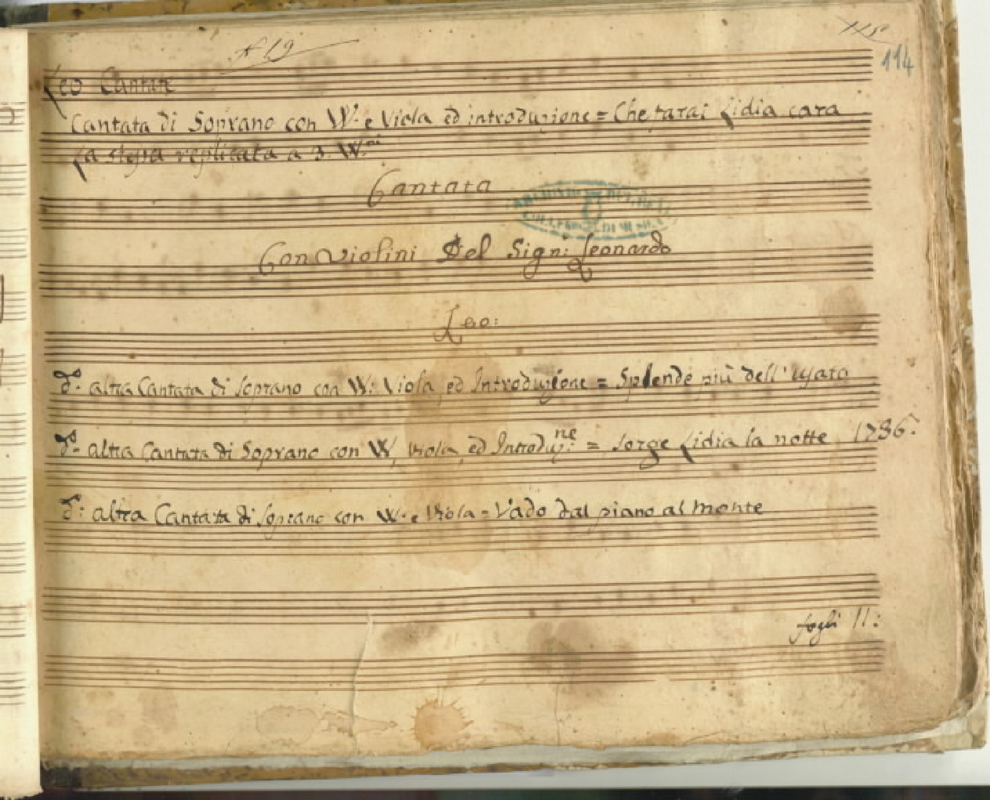 A 19
115
114
Leo Cantate
Cantata di Soprano con W. e Viola ed introduzione = Che farai Lidia cara
La stessa replicata a 3. W.ni
Cantata
ARCHIVIO DEL REAL
COLLEGIO DI MUSICA
Con violini Del Sign: Leonardo
Leo:
d.a altra Cantata di Soprano con W. Viola, ed Introduzione = Splende più dell' usato
d.a altra Cantata di Soprano con W, Viola, ed Introduz.ne = Sorge Lidia la notte 1736.
d.a altra Cantata di Soprano con W. e Viola = Vado dal piano al monte
fogli 11: